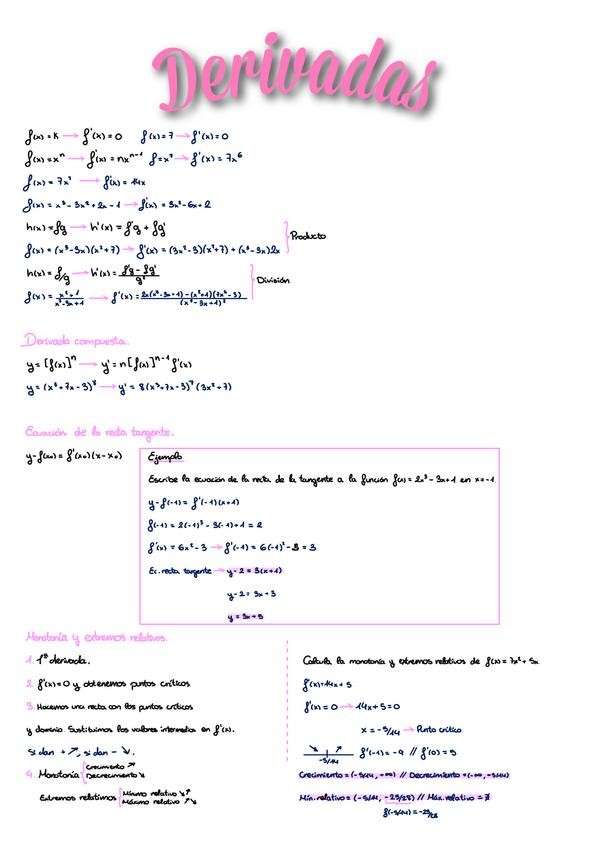 Derivadas
f(x) = K → f'(x) = 0 f(x) = 7 → f'(x) = 0
f(x) = xⁿ → f'(x) = nxⁿ⁻¹ f = x⁷ → f'(x) = 7x⁶
f(x) = 7x² → f'(x) = 14x
f(x) = x³ - 3x² + 2x - 1 → f'(x) = 3x² - 6x + 2
h(x) = fg → h'(x) = f'g + fg'
f(x) = (x³-3x)(x²+7) → f'(x) = (3x²-3)(x²+7) + (x³-3x)2x
Producto
h(x) = f/g → h'(x) = f'g - fg' / g²
División
Derivada compuesta.
y = [f(x)]ⁿ → y' = n[f(x)]ⁿ⁻¹ f'(x)
y = (x³+7x-3)⁸ → y' = 8(x³+7x-3)⁷ (3x²+7)
Ecuación de la recta tangente.
y-f(x₀) = f'(x₀)(x-x₀)
Ejemplo
Escribe la ecuación de la recta de la tangente a la función f(x) = 2x³ - 3x + 1 en x = -1.
y-f(-1) = f'(-1)(x+1)
f(-1) = 2(-1)³ - 3(-1) + 1 = 2
f'(x) = 6x² - 3 → f'(-1) = 6(-1)² - 3 = 3
Ec. recta tangente → y-2 = 3(x+1)
y-2 = 3x+3
y = 3x+5
Monotonía y extremos relativos.
1. 1ª derivada.
2. f'(x) = 0 y obtenemos puntos críticos.
3. Hacemos una recta con los puntos críticos
y dominio. Sustituimos los valores intermedios en f'(x).
Si dan + ↗, si dan - ↘.
4. Monotonía { Crecimiento ↗
Decrecimiento ↘
Extremos relativos { Mínimo relativo ↘↗
Máximo relativo ↗↘
Calcula la monotonía y extremos relativos de f(x) = 7x² + 5x.
f'(x) = 14x + 5
f'(x) = 0 → 14x + 5 = 0
x = -5/14 → Punto crítico
-5/14
f'(-1) = -9 // f'(0) = 5
Crecimiento = (-5/14, +∞) // Decrecimiento = (-∞, -5/14)
Mín. relativo = (-5/14, -25/28) // Máx. relativo = ∄
f(-5/14) = -25/28